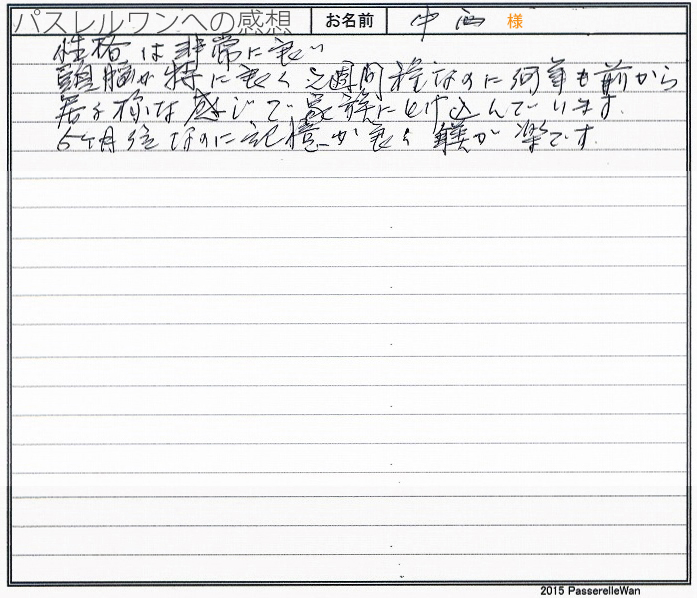 パスレルワンへの感想 お名前 中西 様
性格は非常に良い
頭脳が特に良く2週間程なのに何年も前から
居る様な感じで家族にとけ込んでいます.
5ヶ月位なのに記憶が良く躾が楽です.
2015 PasserelleWan